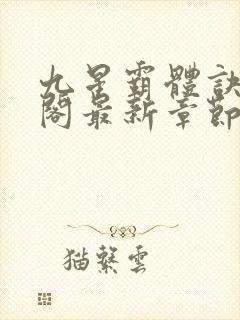 九星霸體訣
閣最新章節
猫繫雲